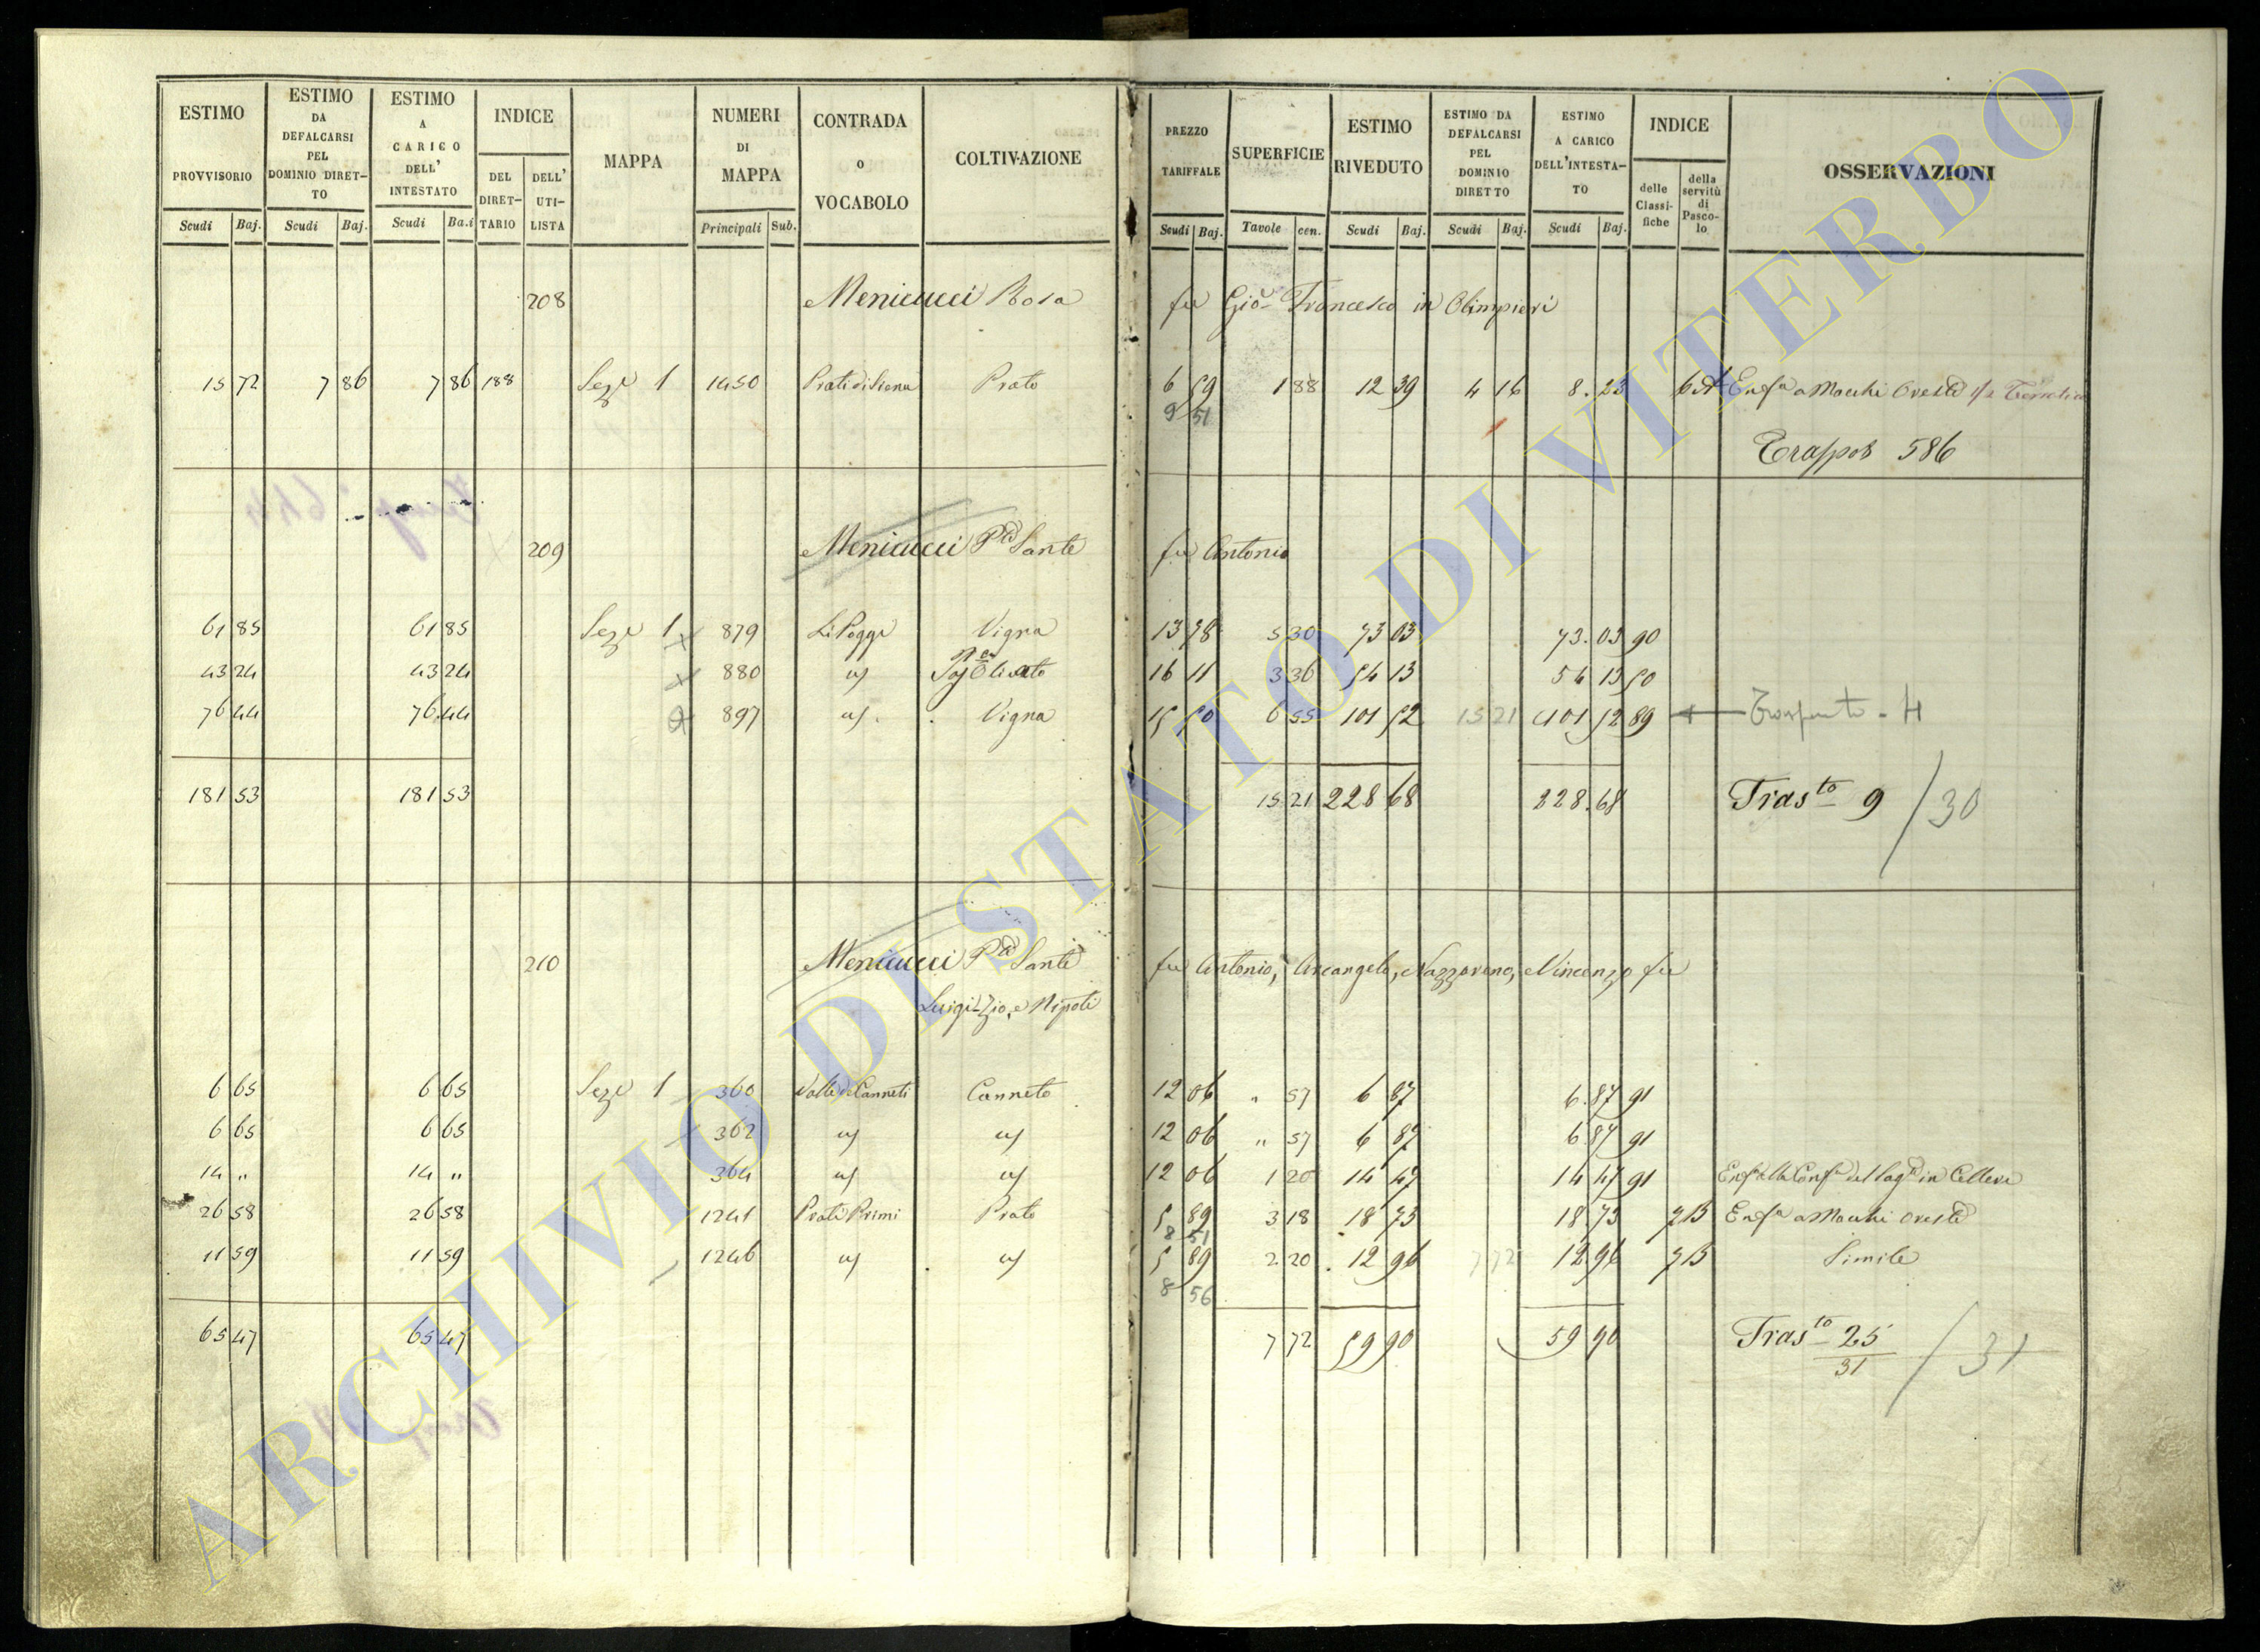 ESTIMO PROVVISORIO Scudi Baj.
ESTIMO DA DEFALCARSI PEL DOMINIO DIRETTO Scudi Baj.
ESTIMO A CARICO DELL' INTESTATO Scudi Ba.i
INDICE DEL DIRETTARIO DELL' UTILISTA
MAPPA
NUMERI DI MAPPA Principali Sub.
CONTRADA o VOCABOLO
COLTIVAZIONE
PREZZO TARIFFALE Scudi Baj.
SUPERFICIE Tavole cen.
ESTIMO RIVEDUTO Scudi Baj.
ESTIMO DA DEFALCARSI PEL DOMINIO DIRETTO Scudi Baj.
ESTIMO A CARICO DELL'INTESTATO Scudi Baj.
INDICE delle Classifiche della servitù di Pascolo
OSSERVAZIONI
208 Menicucci Rosa fu Gio Francesco in Olimpieri
15 72 7 86 7 86 188 Seze 1 1450 Prati di Siena Prato 6 59 1 88 12 39 4 16 8.23 6 A Enfa a Macchi Oreste
9 51
Traspos 586
209 Menicucci Pte Sante fu Antonio
61 85 61 85 Seze 1 879 Li Poggi Vigna 13 78 5 30 73 03 73.03 90
43 24 43 24 880 us Olivato 16 11 3 36 54 13 54 13 50
76 44 76.44 897 us. Vigna 15 50 6 55 101 52 15 21 101 52 89 Trasporto - H
181 53 181 53 15 21 228 68 228.68 Trasto 9 / 30
210 Menicucci Pte Sante fu Antonio, Arcangelo, Nazzareno, Vincenzo fu
Luigi Zio, e Nipoti
6 65 6 65 Seze 1 360 Valle de Canneti Canneto 12 06 " 57 6 87 6.87 91
6 65 6 65 362 us us 12 06 " 57 6 87 6.87 91
14 " 14 " 364 us us 12 06 1 20 14 47 14 47 91 in Cellere
26 58 26 58 1241 Prati Primi Prato 5 89 3 18 18 73 18.73 7 B Enfa a Macchi Oreste
8 51
11 59 11 59 1246 us us 5 89 2 20 12 96 7 72 12.96 7 B Simile
8 56
65 47 65 47 7 72 59 90 59 90 Trasto 25 / 31
31
ARCHIVIO DI STATO DI VITERBO